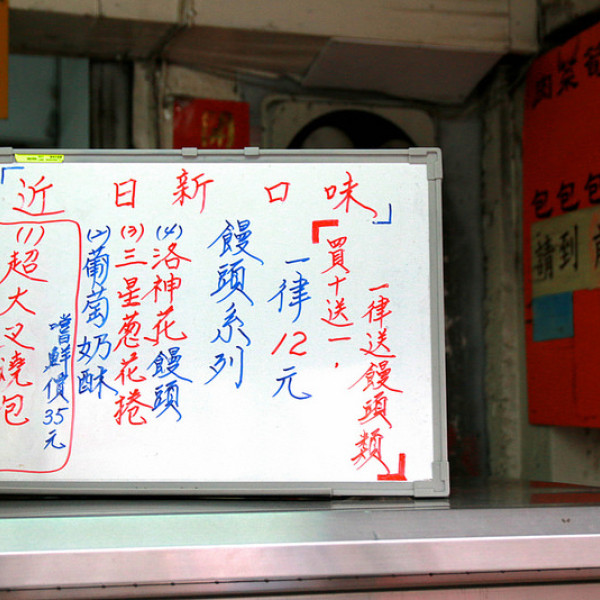 近日新口味
(1)超大叉燒包
嚐鮮價35元
(2)葡萄奶酥
(3)三星葱花捲
(4)洛神花饅頭
饅頭系列
一律12元
買十送一，
一律送饅頭類
包包包
請到